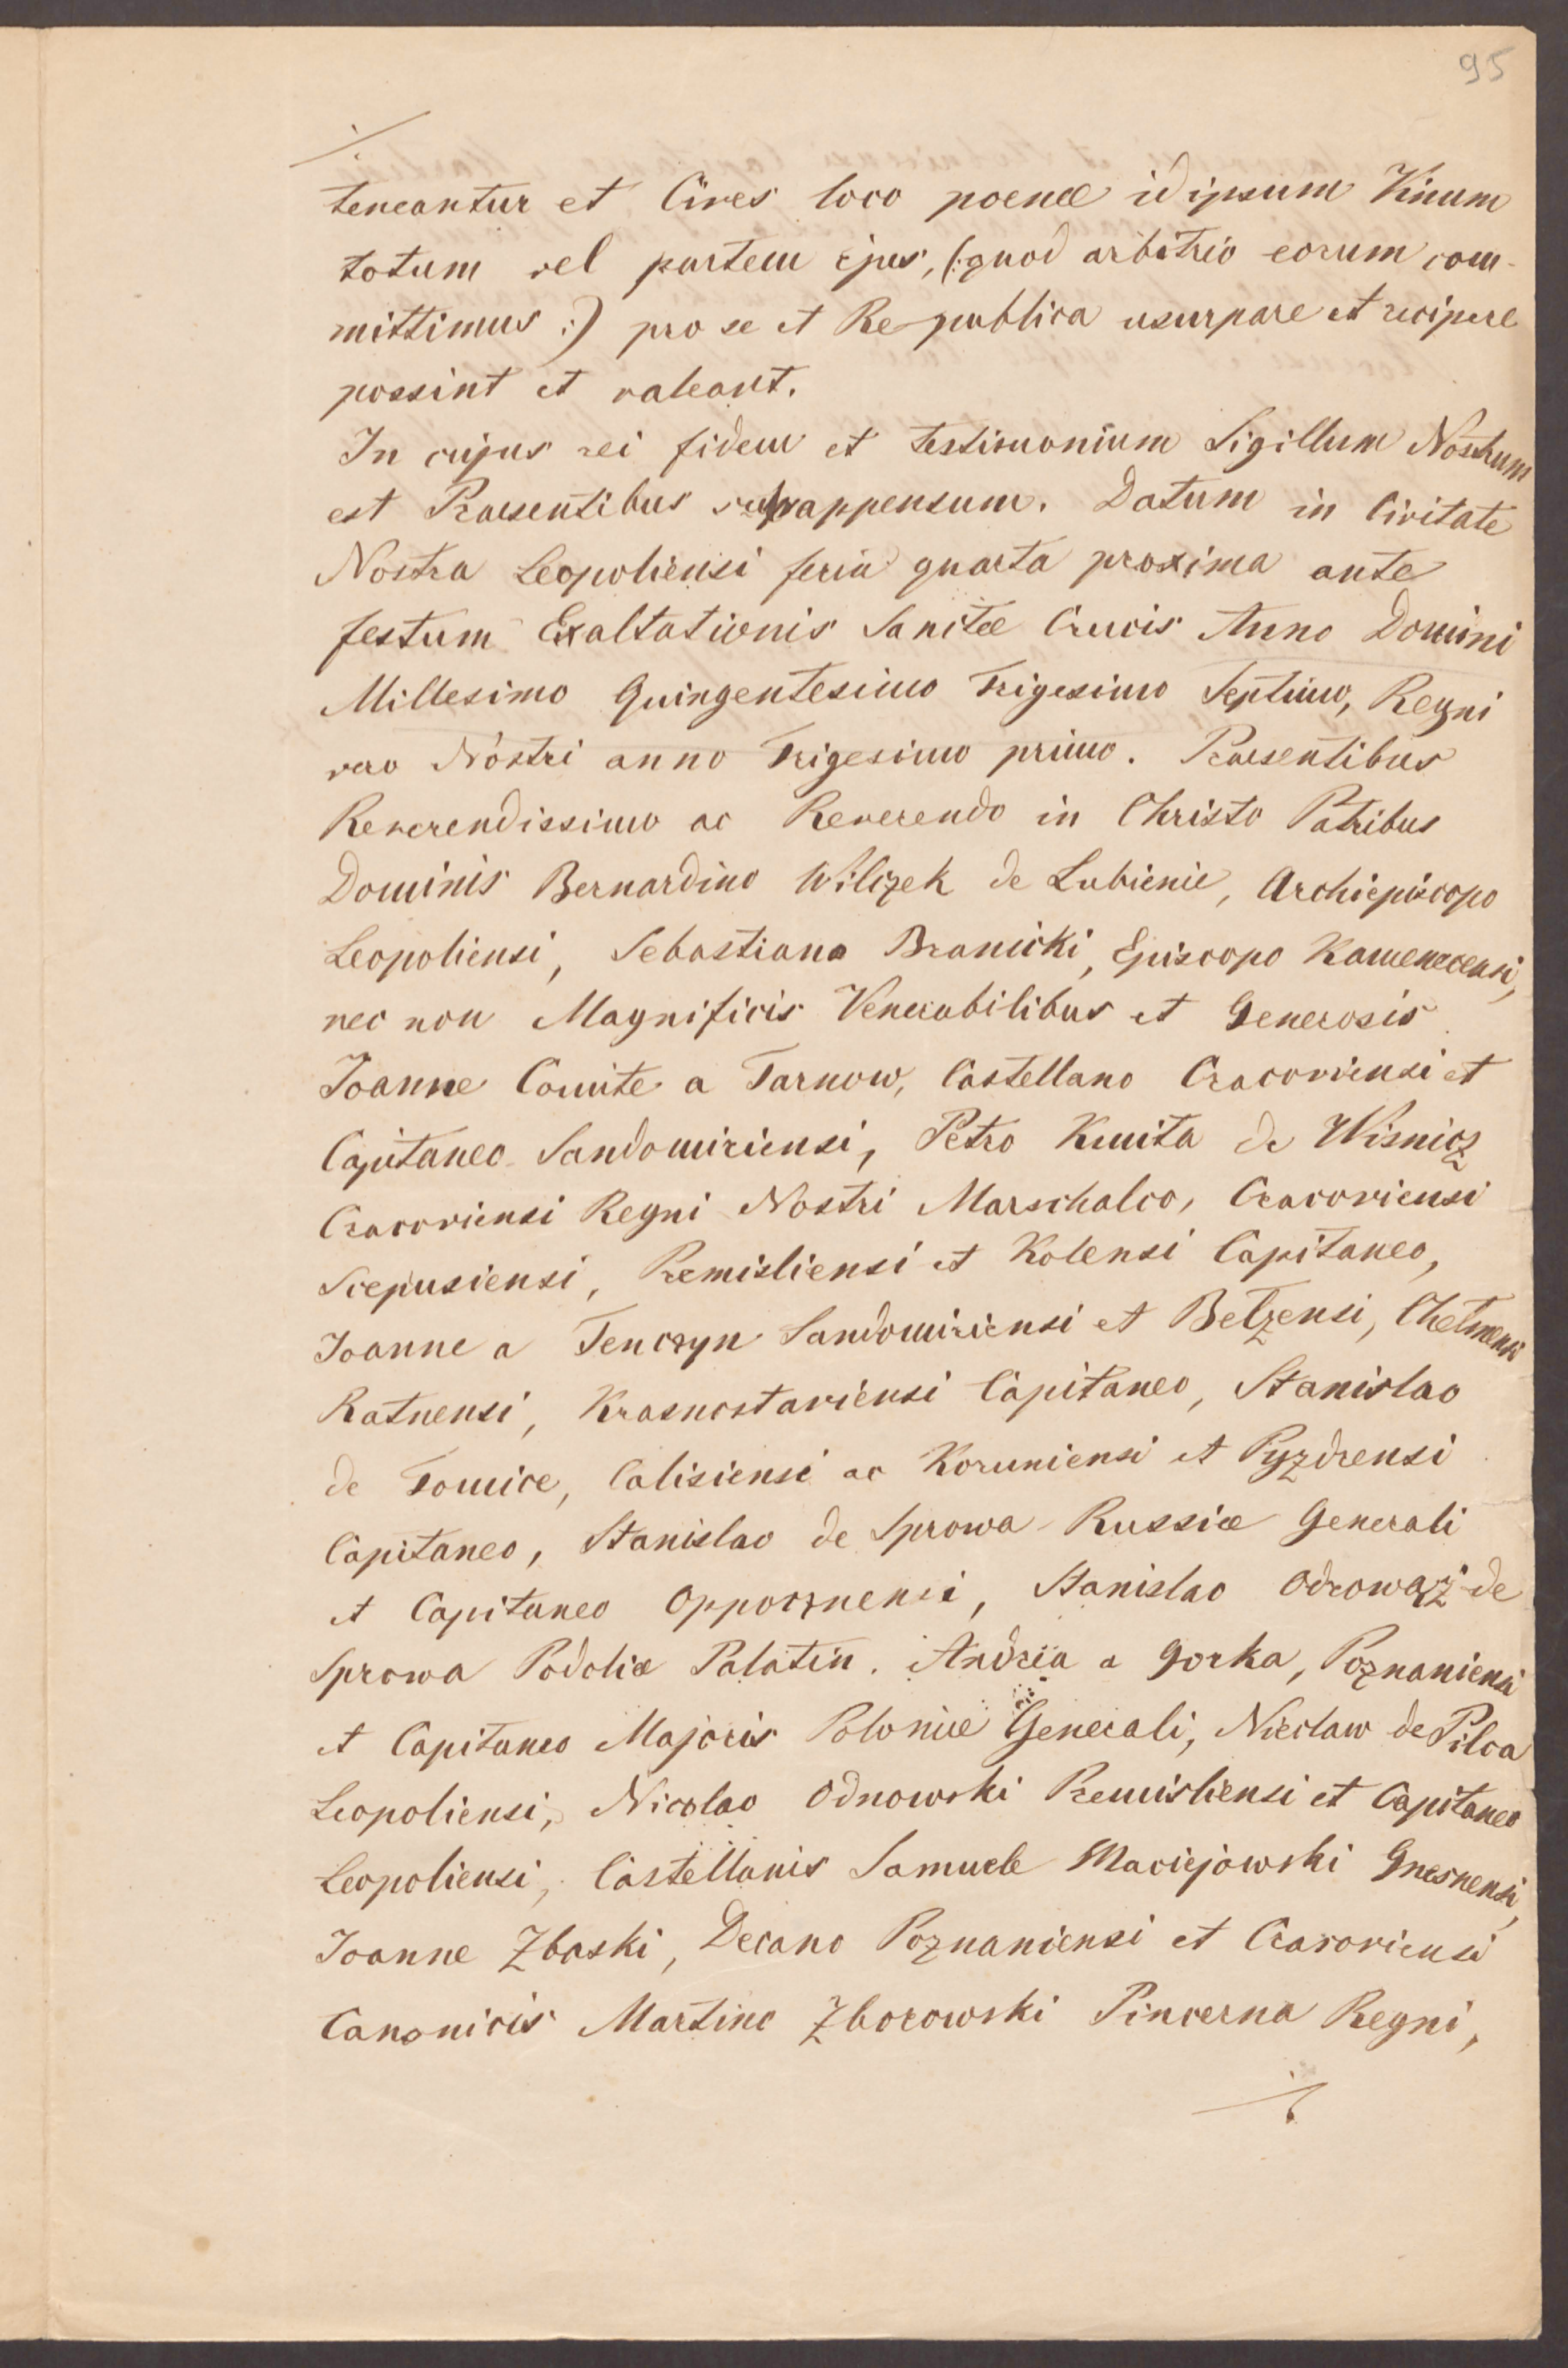 95
./.
teneantur et Cives loco poenæ idipsum Vinum
totum vel partem ejus, (:quod arbitrio eorum com-
mittimus:) pro se et Re-publica usurpare et recipere
possint et valeant.
In cujus rei fidem et testimonium Sigillum Nostrum
est Praesentibus subappensum. Datum in Civitate
Nostra Leopoliensi feria quarta proxima ante
festum Exaltationis Sanctæ Crucis Anno Domini
Millesimo Quingentesimo Trigesimo Septimo, Regni
vero Nostri anno Trigesimo primo. Praesentibus
Reverendissimo ac Reverendo in Christo Patribus
Dominis Bernardino Wilczek de Lubienie, Archiepiscopo
Leopoliensi, Sebastiano Branicki, Episcopo Kamenecensi,
nec non Magnificis Venerabilibus et Generosis
Joanne Comite a Tarnow, Castellano Cracoviensi et
Capitaneo Sandomiriensi, Petro Kmita de Wisnicz
Cracoviensi Regni Nostri Marschalco, Cracoviensi
Scepusiensi, Premisliensi et Kolensi Capitaneo,
Joanne a Tenczyn Sandomiriensi et Belzensi, Chelmensi
Ratnensi, Krasnostaviensi Capitaneo, Stanislao
de Tomice, Calisiensi ac Koruniensi et Pyzdrensi
Capitaneo, Stanislao de Sprowa Russiæ Generali
et Capitaneo Oppocznensi, Stanislao Odrowąż de
Sprowa Podoliæ Palatin. Andrea a Gorka, Poznaniensi
et Capitaneo Majoris Poloniæ Generali, Nicolaw de Pilca
Leopoliensi, Nicolao Odnowski Premisliensi et Capitaneo
Leopoliensi, Castellanis Samuele Maciejowski Gnesnensi,
Joanne Zbaski, Decano Poznaniensi et Cracoviensi
Canonicis Martino Zborowski Pincerna Regni,
./.